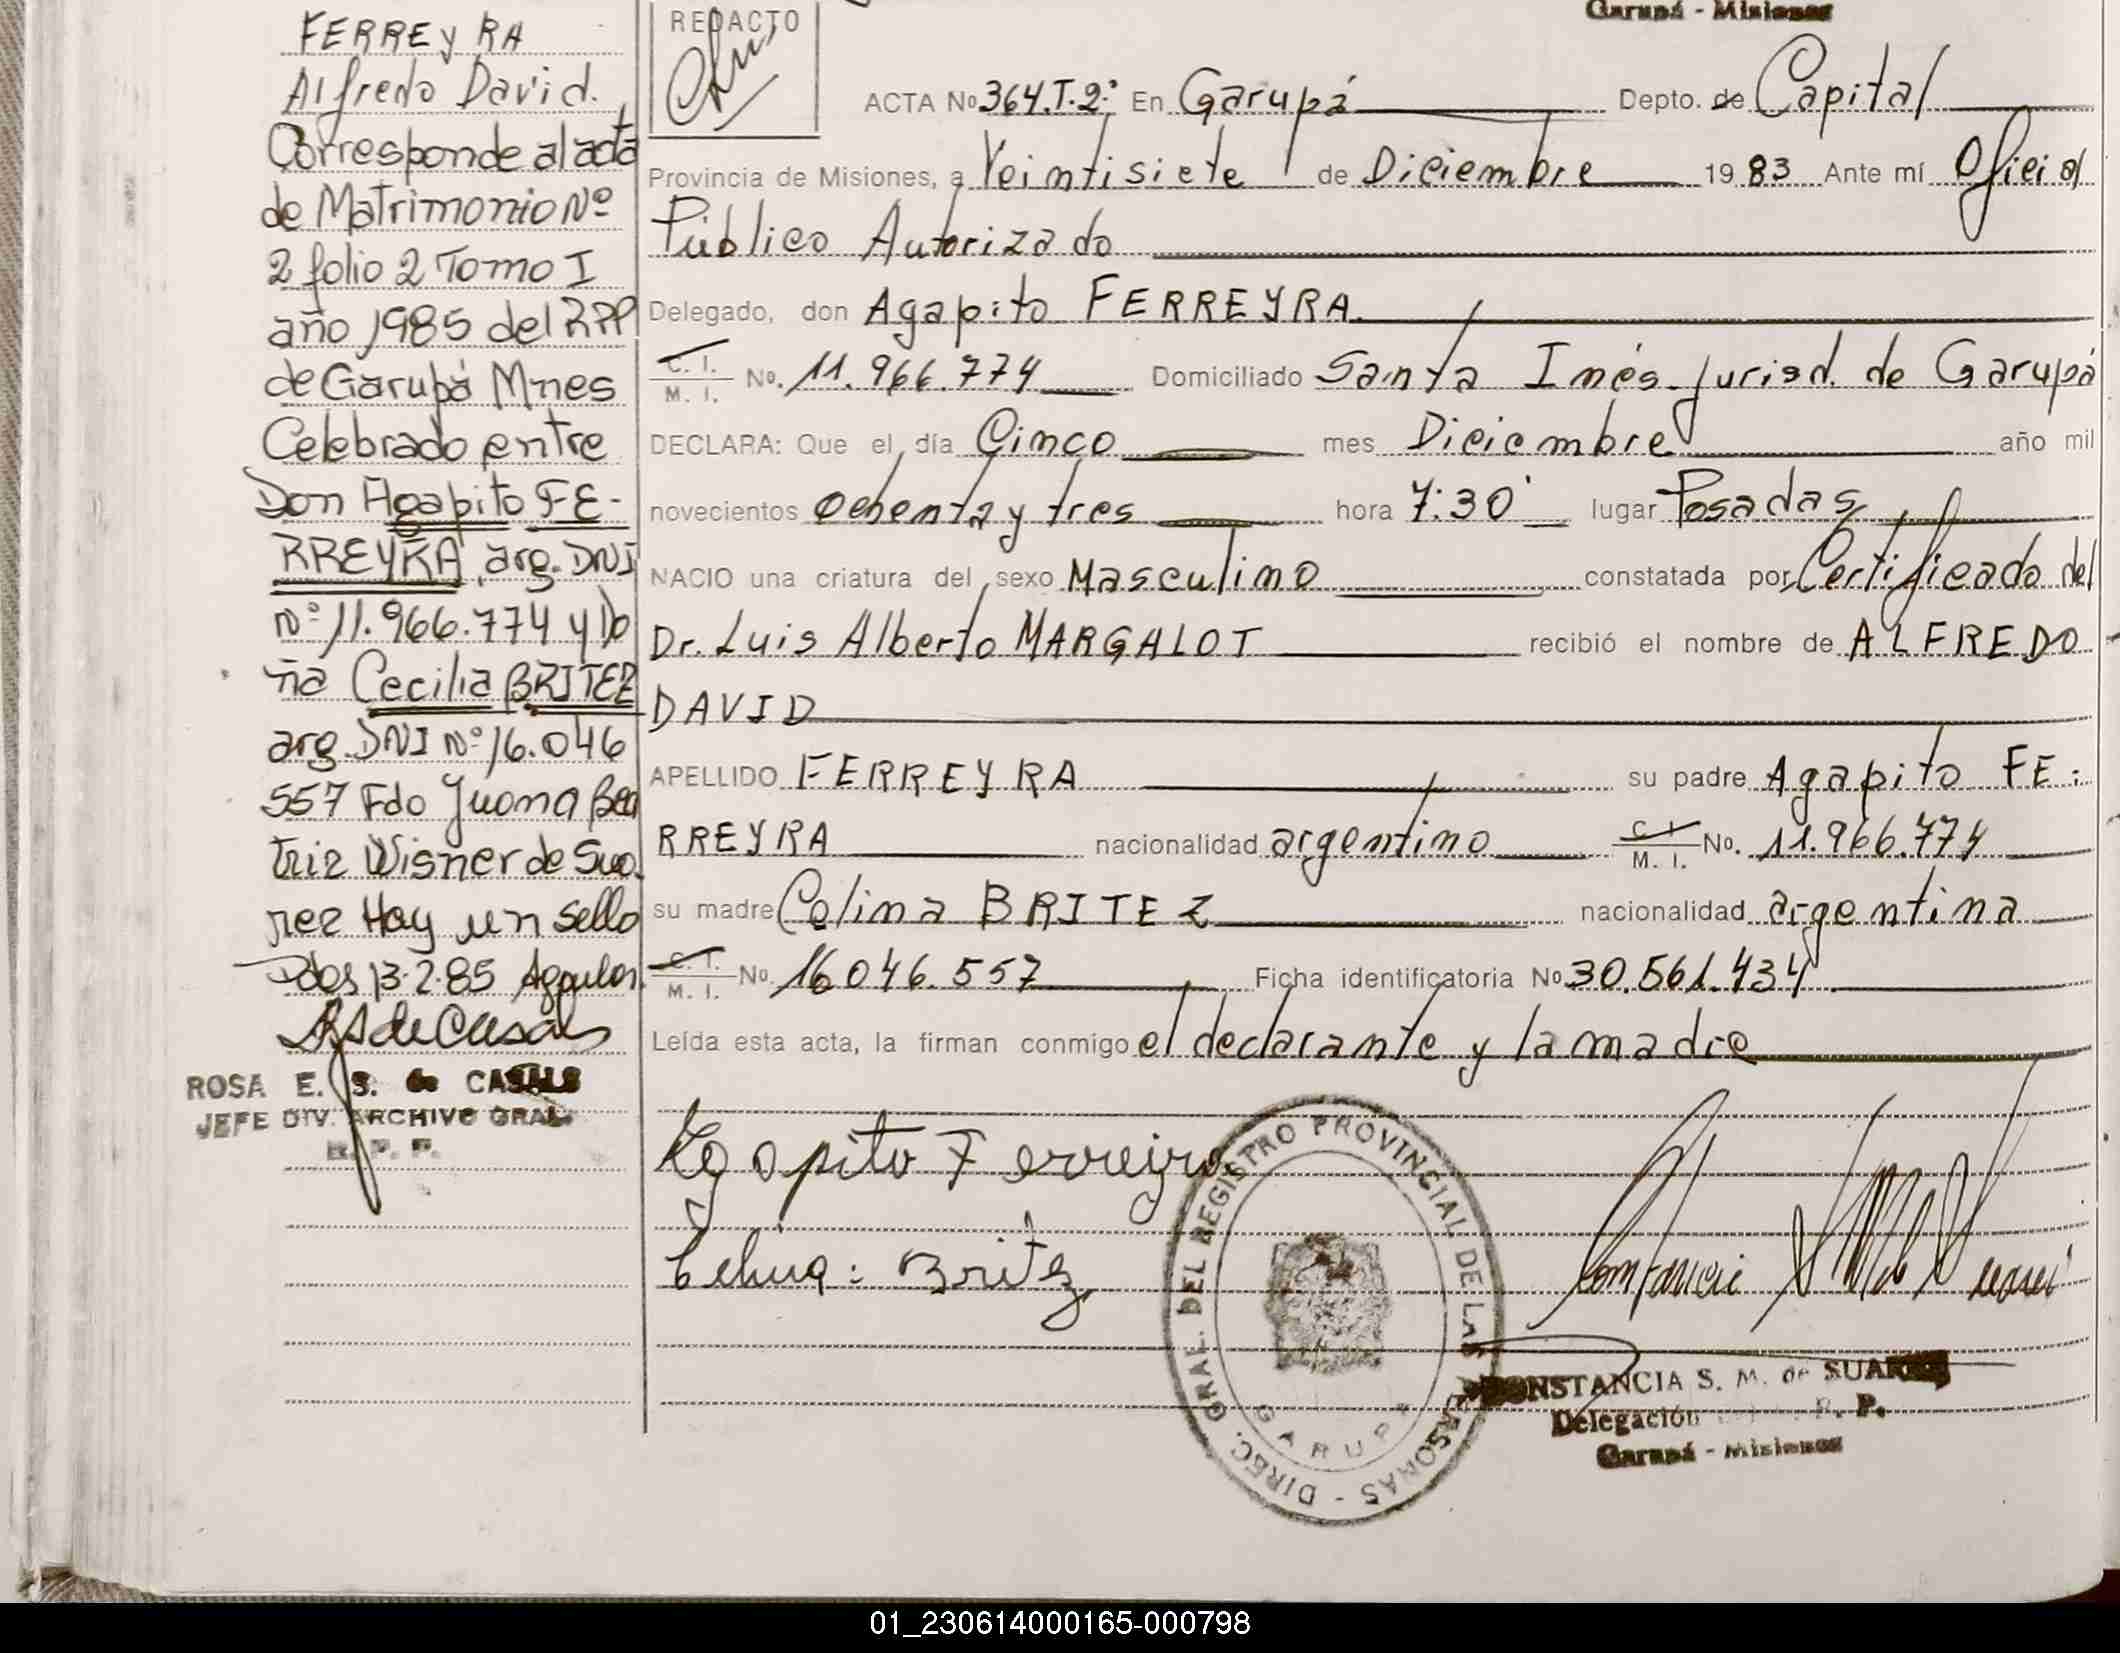 FERREYRA
Alfredo David.
Corresponde al acta
de Matrimonio Nº
2 folio 2 Tomo I
año 1985 del RPP
de Garupá Mnes
Celebrado entre
Don Agapito FE-
RREYRA, arg. DNI
Nº 11.966.774 y Do
ña Cecilia BRITEZ
arg. DNI Nº 16.046
557 Fdo Juana Bea
triz Wisner de Sua
rez Hay un sello
Pdas 13-2-85
ROSA E. S. de CASALS
JEFE DIV. ARCHIVO GRAL.
R. P. P.
REDACTO
Garupá - Misiones
ACTA No 364.T.2º En Garupá Depto. de Capital
Provincia de Misiones, a Veintisiete de Diciembre 1983 Ante mí Oficial
Público Autorizado
Delegado, don Agapito FERREYRA.
C. I.
M. I. No. 11.966.774 Domiciliado Santa Inés-Jurisd. de Garupá
DECLARA: Que el día Cinco mes Diciembre año mil
novecientos Ochenta y tres hora 7:30' lugar Posadas
NACIO una criatura del sexo Masculino constatada por Certificado del
Dr. Luis Alberto MARGALOT recibió el nombre de ALFREDO
DAVID
APELLIDO FERREYRA su padre Agapito FE-
RREYRA nacionalidad argentino C. I.
M. I. No. 11.966.774
su madre Celina BRITEZ nacionalidad argentina
C. I.
M. I. No. 16.046.557 Ficha identificatoria No 30.561.434
Leída esta acta, la firman conmigo el declarante y la madre
Agapito Ferreyra
Celina: Britez
DIREC. GRAL. DEL REGISTRO PROVINCIAL DE LAS PERSONAS -
GARUPA
CONSTANCIA S. M. de SUAREZ
Delegación R. P.
Garupá - Misiones
01_230614000165-000798